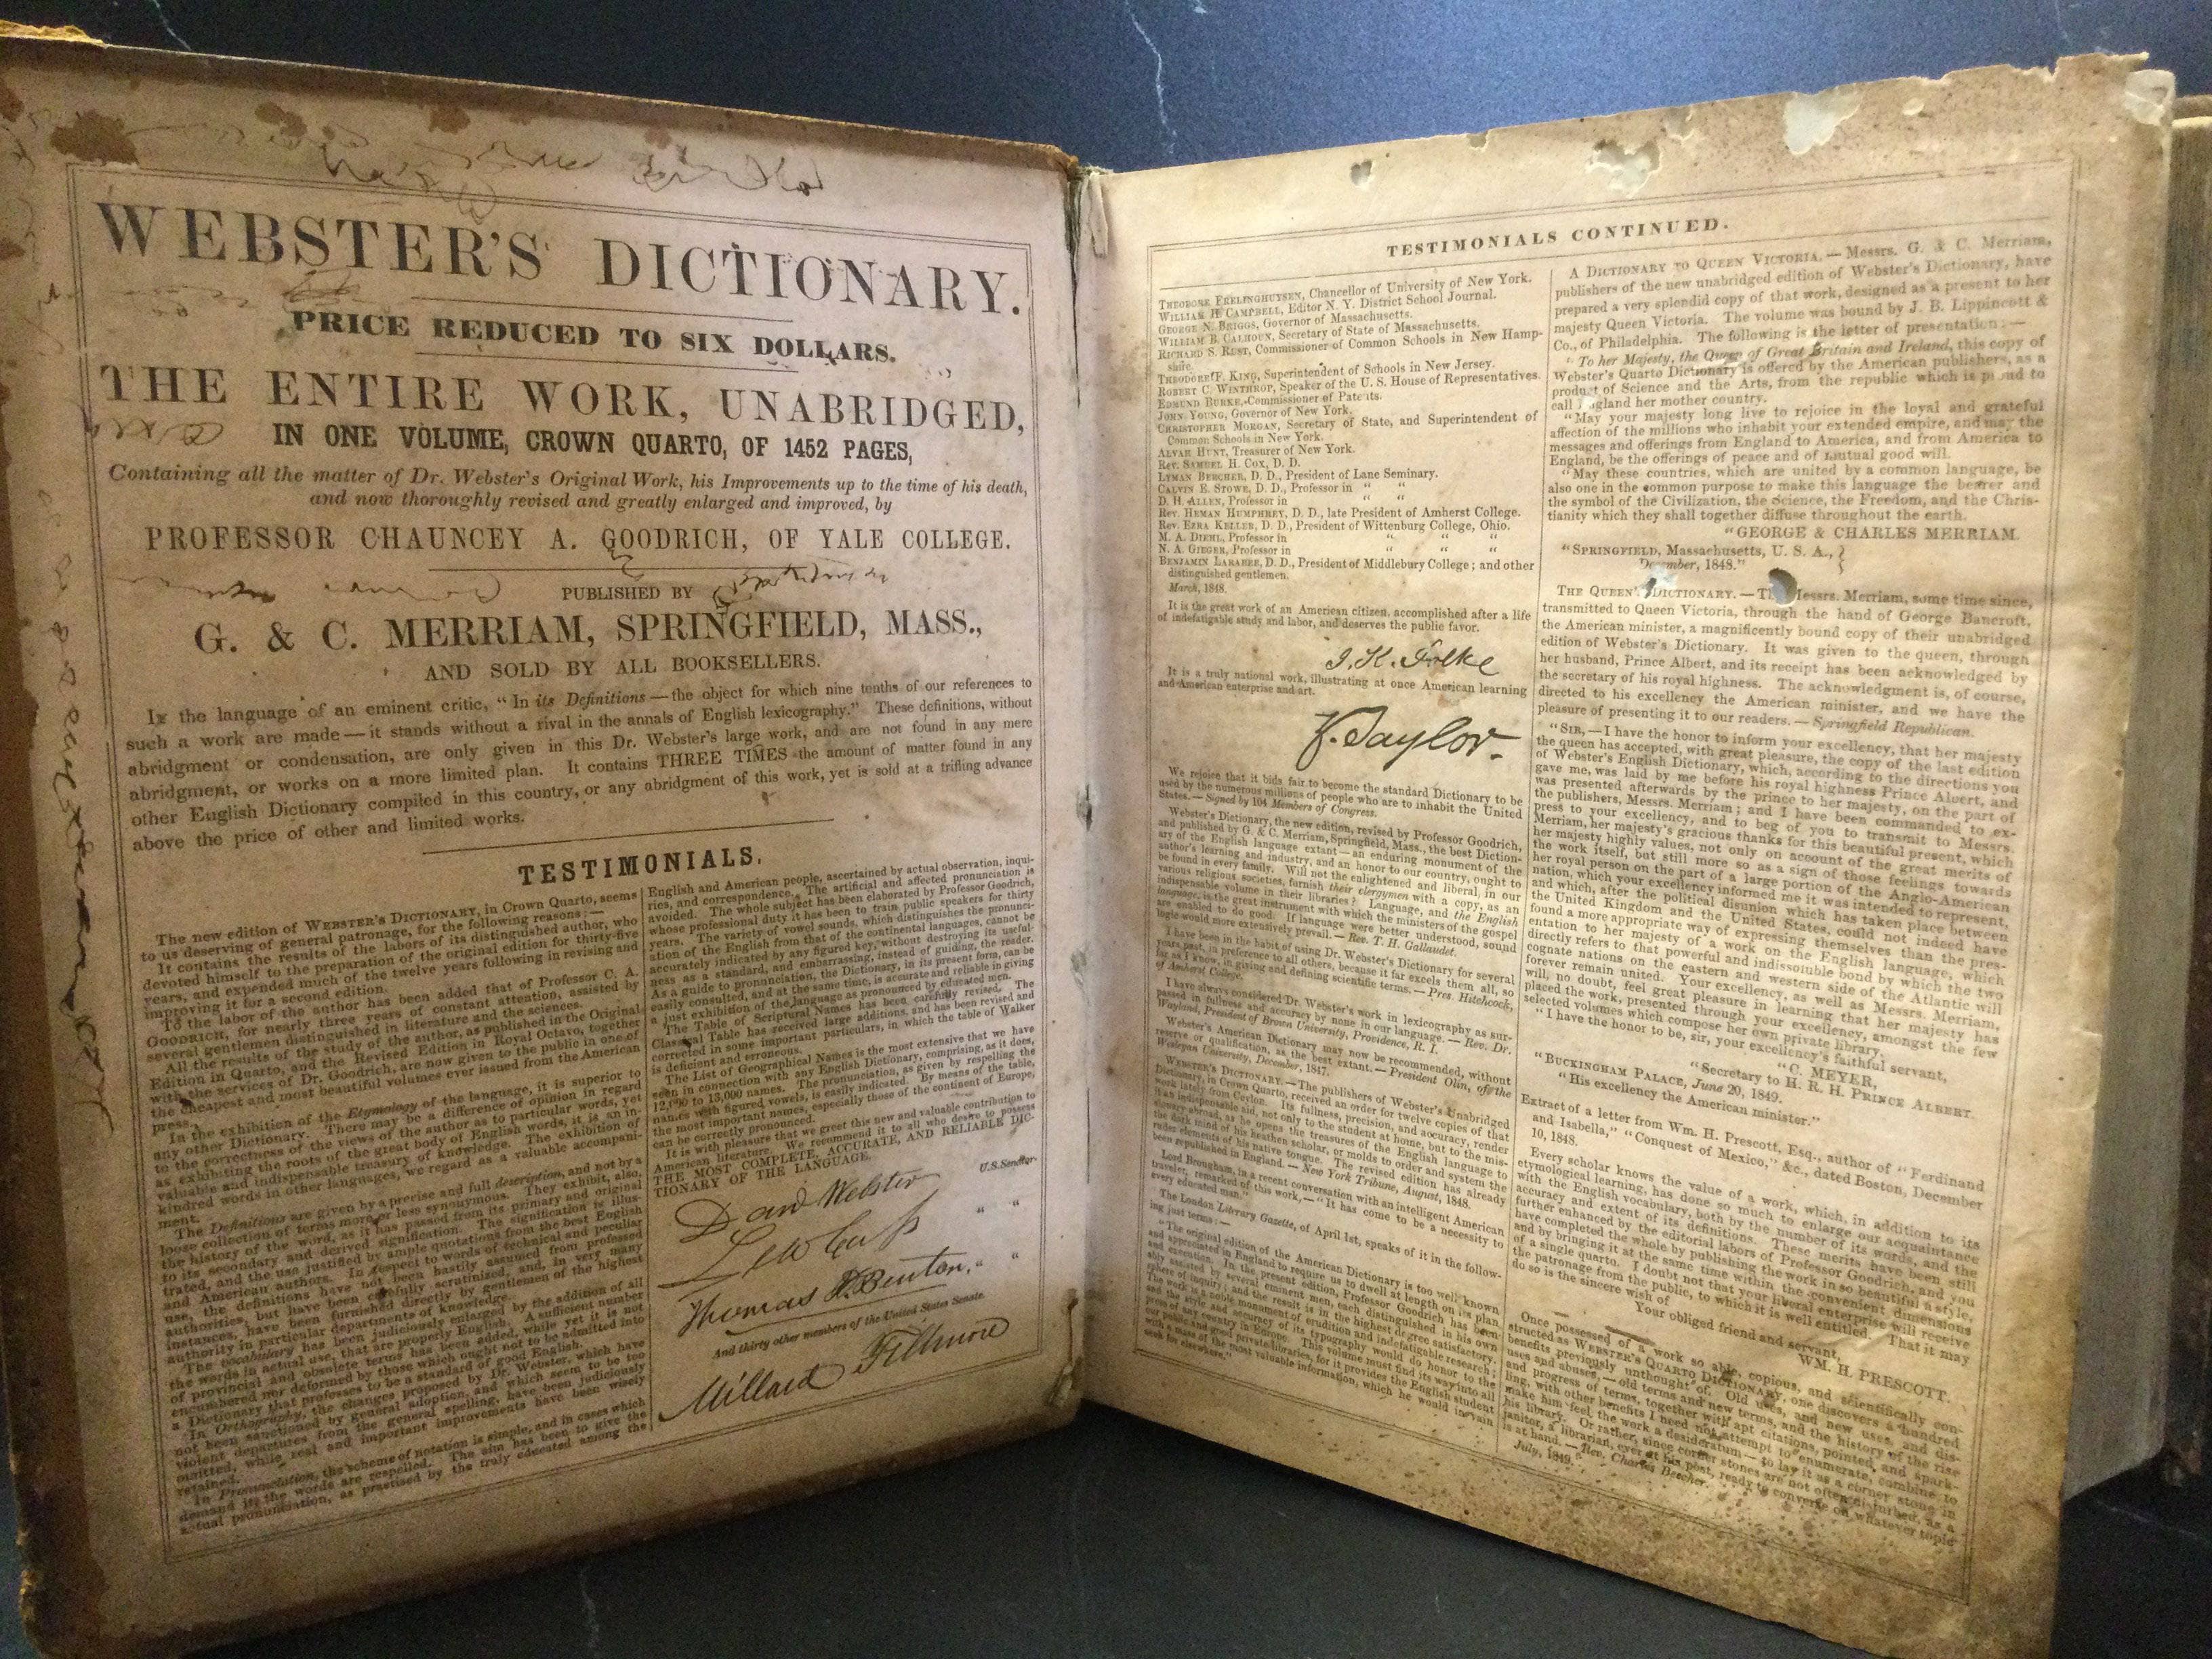 WEBSTER'S DICTIONARY.
PRICE REDUCED TO SIX DOLLARS.
THE ENTIRE WORK, UNABRIDGED,
IN ONE VOLUME, CROWN QUARTO, OF 1452 PAGES,
Containing all the matter of Dr. Webster's Original Work, his Improvements up to the time of his death,
and now thoroughly revised and greatly enlarged and improved, by
PROFESSOR CHAUNCEY A. GOODRICH, OF YALE COLLEGE.
PUBLISHED BY
G. & C. MERRIAM, SPRINGFIELD, MASS.,
AND SOLD BY ALL BOOKSELLERS.
In the language of an eminent critic, "In its Definitions—the object for which nine tenths of our references to
such a work are made—it stands without a rival in the annals of English lexicography." These definitions, without
abridgment or condensation, are only given in this Dr. Webster's large work, and are not found in any mere
abridgment, or works on a more limited plan. It contains THREE TIMES the amount of matter found in any
other English Dictionary compiled in this country, or any abridgment of this work, yet is sold at a trifling advance
above the price of other and limited works.
TESTIMONIALS.
The new edition of WEBSTER'S DICTIONARY, in Crown Quarto, seems
to us deserving of general patronage, for the following reasons:—
It contains the results of the labors of its distinguished author, who
devoted himself to the preparation of the original edition for thirty-five
years, and expended much of the twelve years following in revising and
improving it for a second edition.
To the labor of the author has been added that of Professor C. A.
GOODRICH, for nearly three years of constant attention, assisted by
several gentlemen distinguished in literature and the sciences.
All the results of the study of the author, as published in the Original
Edition in Quarto, and the Revised Edition in Royal Octavo, together
with the services of Dr. Goodrich, are now given to the public in one of
the cheapest and most beautiful volumes ever issued from the American
press.
In the exhibition of the Etymology of the language, it is superior to
any other Dictionary. There may be a difference of opinion in regard
to the correctness of the views of the author as to particular words, yet
as exhibiting the roots of the great body of English words, it is an in-
valuable and indispensable treasury of knowledge. The exhibition of
kindred words in other languages, we regard as a valuable accompani-
ment.
The Definitions are given by a precise and full description, and not by a
loose collection of terms more or less synonymous. They exhibit, also,
the history of the word, as it has passed from its primary and original
to its secondary and derived signification. The signification is illus-
trated, and the use justified by ample quotations from the best English
and American authors. In respect to words of technical and peculiar
use, the definitions have not been hastily assumed from professed
authorities, but have been carefully scrutinized, and, in very many
instances, have been furnished directly by gentlemen of the highest
authority in particular departments of knowledge.
The vocabulary has been judiciously enlarged by the addition of all
the words in actual use, that are properly English. A sufficient number
of provincial and obsolete terms has been added, while yet it is not
encumbered nor deformed by those which ought not to be admitted into
a Dictionary that professes to be a standard of good English.
In Orthography, the changes proposed by Dr. Webster, which have
not been sanctioned by general adoption, and which seem to be too
violent departures from the general spelling, have been judiciously
omitted, while real and important improvements have been wisely
retained.
In Pronunciation, the scheme of notation is simple, and in cases which
demand it, the words are respelled. The aim has been to give the
actual pronunciation, as practised by the truly educated among the
English and American people, ascertained by actual observation, inqui-
ries, and correspondence. The artificial and affected pronunciation is
avoided. The whole subject has been elaborated by Professor Goodrich,
whose professional duty it has been to train public speakers for thirty
years. The variety of vowel sounds, which distinguishes the pronunci-
ation of the English from that of the continental languages, cannot be
accurately indicated by any figured key, without destroying its useful-
ness as a standard, and embarrassing, instead of guiding, the reader.
As a guide to pronunciation, the Dictionary, in its present form, can be
easily consulted, and at the same time, is accurate and reliable in giving
a just exhibition of the language as pronounced by educated men.
The Table of Scriptural Names has been carefully revised. The
Classical Table has received large additions, and has been revised and
corrected in some important particulars, in which the table of Walker
is deficient and erroneous.
The List of Geographical Names is the most extensive that we have
seen in connection with any English Dictionary, comprising, as it does,
12,000 to 13,000 names. The pronunciation, as given by respelling the
names with figured vowels, is easily indicated. By means of the table,
the most important names, especially those of the continent of Europe,
can be correctly pronounced.
It is with pleasure that we greet this new and valuable contribution to
American literature. We recommend it to all who desire to possess
THE MOST COMPLETE, ACCURATE, AND RELIABLE DIC-
TIONARY OF THE LANGUAGE.
Danl Webster U.S. Senator.
Lew Cass " "
Thomas H. Benton, " "
And thirty other members of the United States Senate.
Millard Fillmore
TESTIMONIALS CONTINUED.
THEODORE FRELINGHUYSEN, Chancellor of University of New York.
WILLIAM H. CAMPBELL, Editor N. Y. District School Journal.
GEORGE N. BRIGGS, Governor of Massachusetts.
WILLIAM B. CALHOUN, Secretary of State of Massachusetts.
RICHARD S. RUST, Commissioner of Common Schools in New Hamp-
shire.
THEODORE F. KING, Superintendent of Schools in New Jersey.
ROBERT C. WINTHROP, Speaker of the U. S. House of Representatives.
EDMUND BURKE, Commissioner of Patents.
JOHN YOUNG, Governor of New York.
CHRISTOPHER MORGAN, Secretary of State, and Superintendent of
Common Schools in New York.
ALVAH HUNT, Treasurer of New York.
Rev. SAMUEL H. COX, D. D.
LYMAN BEECHER, D. D., President of Lane Seminary.
CALVIN E. STOWE, D. D., Professor in " "
D. H. ALLEN, Professor in " "
Rev. HEMAN HUMPHREY, D. D., late President of Amherst College.
Rev. EZRA KELLER, D. D., President of Wittenburg College, Ohio.
M. A. DIEHL, Professor in " " "
N. A. GIEGER, Professor in " " "
BENJAMIN LARABEE, D. D., President of Middlebury College; and other
distinguished gentlemen.
March, 1848.
It is the great work of an American citizen, accomplished after a life
of indefatigable study and labor, and deserves the public favor.
J. K. Polke
It is a truly national work, illustrating at once American learning
and American enterprise and art.
Z. Taylor.
We rejoice that it bids fair to become the standard Dictionary to be
used by the numerous millions of people who are to inhabit the United
States.—Signed by 104 Members of Congress.
Webster's Dictionary, the new edition, revised by Professor Goodrich,
and published by G. & C. Merriam, Springfield, Mass., the best Diction-
ary of the English language extant—an enduring monument of the
author's learning and industry, and an honor to our country, ought to
be found in every family. Will not the enlightened and liberal, in our
various religious societies, furnish their clergymen with a copy, as an
indispensable volume in their libraries? Language, and the English
language, is the great instrument with which the ministers of the gospel
are enabled to do good. If language were better understood, sound
logic would more extensively prevail.—Rev. T. H. Gallaudet.
I have been in the habit of using Dr. Webster's Dictionary for several
years past, in preference to all others, because it far excels them all, so
far as I know, in giving and defining scientific terms.—Pres. Hitchcock,
of Amherst College.
I have always considered Dr. Webster's work in lexicography as sur-
passed in fullness and accuracy by none in our language.—Rev. Dr.
Wayland, President of Brown University, Providence, R. I.
Webster's American Dictionary may now be recommended, without
reserve or qualification, as the best extant.—President Olin, of the
Wesleyan University, December, 1847.
WEBSTER'S DICTIONARY.—The publishers of Webster's Unabridged
Dictionary, in Crown Quarto, received an order for twelve copies of that
work lately from Ceylon. Its fullness, precision, and accuracy, render
it an indispensable aid, not only to the student at home, but to the mis-
sionary abroad, as he opens the treasures of the English language to
the dark mind of his heathen scholar, or molds to order and system the
ruder elements of his native tongue. The revised edition has already
been republished in England.—New York Tribune, August, 1848.
Lord Brougham, in a recent conversation with an intelligent American
traveler, remarked of this work,—"It has come to be a necessity to
every educated man."
The London Literary Gazette, of April 1st, speaks of it in the follow-
ing just terms:—
"The original edition of the American Dictionary is too well known
and appreciated in England to require us to dwell at length on its plan
and execution. In the present edition, Professor Goodrich has been
ably assisted by several eminent men, each distinguished in his own
sphere of inquiry; and the result is in the highest degree satisfactory.
The work is a noble monument of erudition and indefatigable research;
and the style and accuracy of its typography would do honor to the
press of any country in Europe. This volume must find its way into all
our public and good private libraries, for it provides the English student
with a mass of the most valuable information, which he would in vain
seek for elsewhere."
A DICTIONARY TO QUEEN VICTORIA.—Messrs. G. & C. Merriam,
publishers of the new unabridged edition of Webster's Dictionary, have
prepared a very splendid copy of that work, designed as a present to her
majesty Queen Victoria. The volume was bound by J. B. Lippincott &
Co., of Philadelphia. The following is the letter of presentation:—
"To her Majesty, the Queen of Great Britain and Ireland, this copy of
Webster's Quarto Dictionary is offered by the American publishers, as a
product of Science and the Arts, from the republic which is proud to
call England her mother country.
"May your majesty long live to rejoice in the loyal and grateful
affection of the millions who inhabit your extended empire, and may the
messages and offerings from England to America, and from America to
England, be the offerings of peace and of mutual good will.
"May these countries, which are united by a common language, be
also one in the common purpose to make this language the bearer and
the symbol of the Civilization, the Science, the Freedom, and the Chris-
tianity which they shall together diffuse throughout the earth.
"GEORGE & CHARLES MERRIAM.
"SPRINGFIELD, Massachusetts, U. S. A., }
December, 1848."
THE QUEEN'S DICTIONARY.—The Messrs. Merriam, some time since,
transmitted to Queen Victoria, through the hand of George Bancroft,
the American minister, a magnificently bound copy of their unabridged
edition of Webster's Dictionary. It was given to the queen, through
her husband, Prince Albert, and its receipt has been acknowledged by
the secretary of his royal highness. The acknowledgment is, of course,
directed to his excellency the American minister, and we have the
pleasure of presenting it to our readers.—Springfield Republican.
"SIR,—I have the honor to inform your excellency, that her majesty
the queen has accepted, with great pleasure, the copy of the last edition
of Webster's English Dictionary, which, according to the directions you
gave me, was laid by me before his royal highness Prince Albert, and
was presented afterwards by the prince to her majesty, on the part of
the publishers, Messrs. Merriam; and I have been commanded to ex-
press to your excellency, and to beg of you to transmit to Messrs.
Merriam, her majesty's gracious thanks for this beautiful present, which
her majesty highly values, not only on account of the great merits of
the work itself, but still more so as a sign of those feelings towards
her royal person on the part of a large portion of the Anglo-American
nation, which your excellency informed me it was intended to represent,
and which, after the political disunion which has taken place between
the United Kingdom and the United States, could not indeed have
found a more appropriate way of expressing themselves than the pres-
entation to her majesty of a work on the English language, which
directly refers to that powerful and indissoluble bond by which the two
cognate nations on the eastern and western side of the Atlantic will
forever remain united. Your excellency, as well as Messrs. Merriam,
will, no doubt, feel great pleasure in learning that her majesty has
placed the work, presented through your excellency, amongst the few
selected volumes which compose her own private library.
"I have the honor to be, sir, your excellency's faithful servant,
"C. MEYER,
"Secretary to H. R. H. PRINCE ALBERT.
"BUCKINGHAM PALACE, June 20, 1849.
"His excellency the American minister."
Extract of a letter from Wm. H. Prescott, Esq., author of "Ferdinand
and Isabella," "Conquest of Mexico," &c., dated Boston, December
10, 1848.
Every scholar knows the value of a work, which, in addition to its
etymological learning, has done so much to enlarge our acquaintance
with the English vocabulary, both by the number of its words, and the
accuracy and extent of its definitions. These merits have been still
further enhanced by the editorial labors of Professor Goodrich, and you
have completed the whole by publishing the work in so beautiful a style,
and by bringing it at the same time within the convenient dimensions
of a single quarto. I doubt not that your liberal enterprise will receive
the patronage from the public, to which it is well entitled. That it may
do so is the sincere wish of
Your obliged friend and servant,
WM. H. PRESCOTT.
Once possessed of a work so able, copious, and scientifically con-
structed as WEBSTER'S QUARTO DICTIONARY, one discovers a hundred
benefits previously unthought of. Old uses, and new uses, and dis-
uses and abuses,—old terms and new terms, and the history of the rise
and progress of terms, together with apt citations, pointed, and spark-
ling, with other benefits I need not attempt to enumerate, combine to
make him feel the work a desideratum,—to lay it as a corner stone in
his library. Or rather, since corner stones are not often disturbed, as a
janitor, a librarian, ever at his post, ready to converse on whatever topic
is at hand.—Rev. Charles Beecher.
July, 1849.